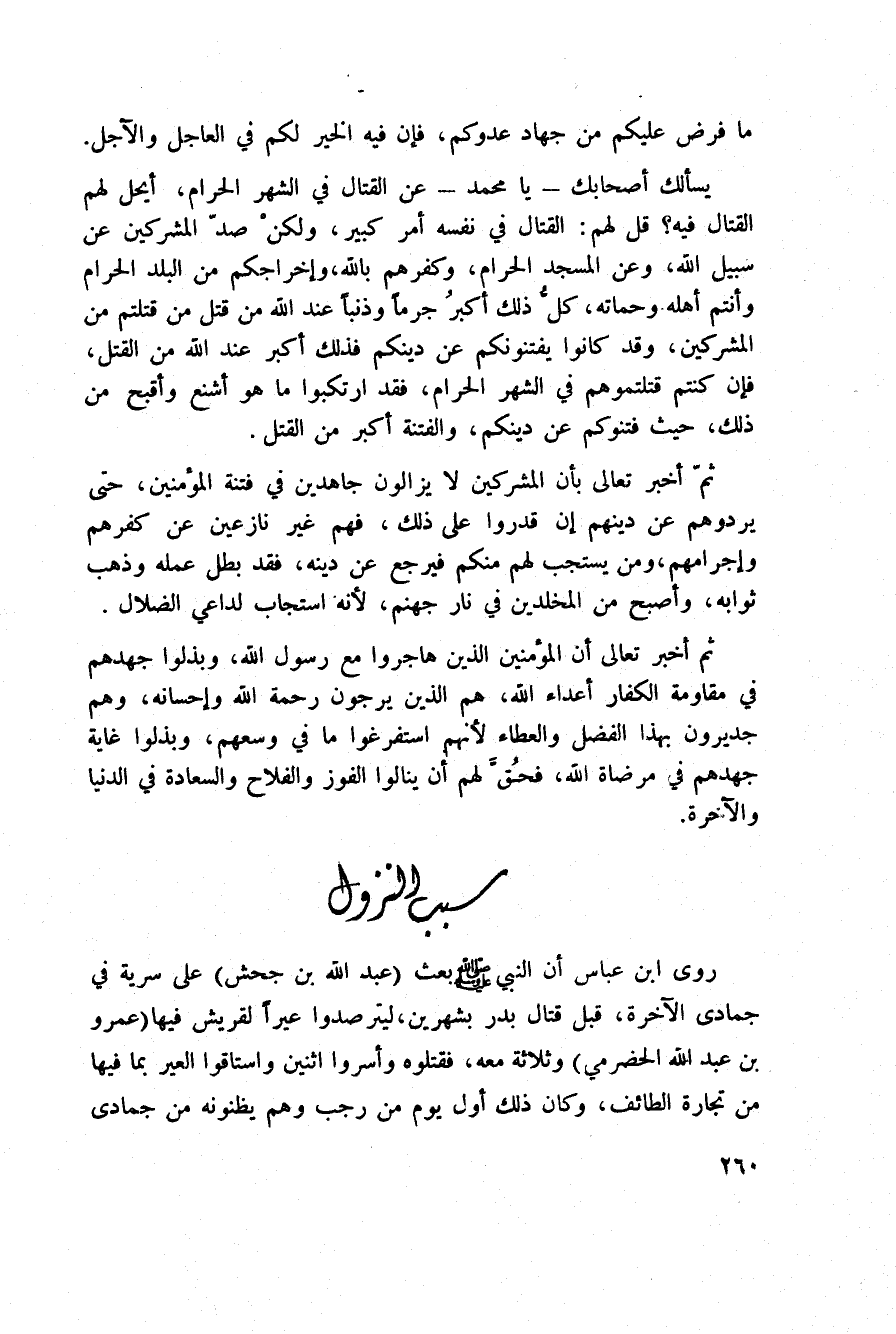 ما فرض عليكم من جهاد عدوكم، فإن فيه الخير لكم في العاجل والآجل.
يسألك أصحابك – يا محمد – عن القتال في الشهر الحرام، أيحل لهم
القتال فيه؟ قل لهم: القتال في نفسه أمر كبير، ولكنْ صدّ المشركين عن
سبيل الله، وعن المسجد الحرام، وكفرهم بالله، وإخراجكم من البلد الحرام
وأنتم أهله وحماته، كلُّ ذلك أكبرُ جرماً وذنباً عند الله من قتل من قتلتم من
المشركين، وقد كانوا يفتنونكم عن دينكم فذلك أكبر عند الله من القتل،
فإن كنتم قتلتموهم في الشهر الحرام، فقد ارتكبوا ما هو أشنع وأقبح من
ذلك، حيث فتنوكم عن دينكم، والفتنة أكبر من القتل.
ثمّ أخبر تعالى بأن المشركين لا يزالون جاهدين في فتنة المؤمنين، حتى
يردوهم عن دينهم إن قدروا على ذلك، فهم غير نازعين عن كفرهم
وإجرامهم، ومن يستجب لهم منكم فيرجع عن دينه، فقد بطل عمله وذهب
ثوابه، وأصبح من المخلدين في نار جهنم، لأنه استجاب لداعي الضلال.
ثم أخبر تعالى أن المؤمنين الذين هاجروا مع رسول الله، وبذلوا جهدهم
في مقاومة الكفار أعداء الله، هم الذين يرجون رحمة الله وإحسانه، وهم
جديرون بهذا الفضل والعطاء لأنهم استفرغوا ما في وسعهم، وبذلوا غاية
جهدهم في مرضاة الله، فحُقَّ لهم أن ينالوا الفوز والفلاح والسعادة في الدنيا
والآخرة.
سبب النزول
روى ابن عباس أن النبي ﷺ بعث (عبد الله بن جحش) على سرية في
جمادى الآخرة، قبل قتال بدر بشهرين، ليترصدوا عيراً لقريش فيها (عمرو
بن عبد الله الحضرمي) وثلاثة معه، فقتلوه وأسروا اثنين واستاقوا العير بما فيها
من تجارة الطائف، وكان ذلك أول يوم من رجب وهم يظنونه من جمادى
٢٦٠